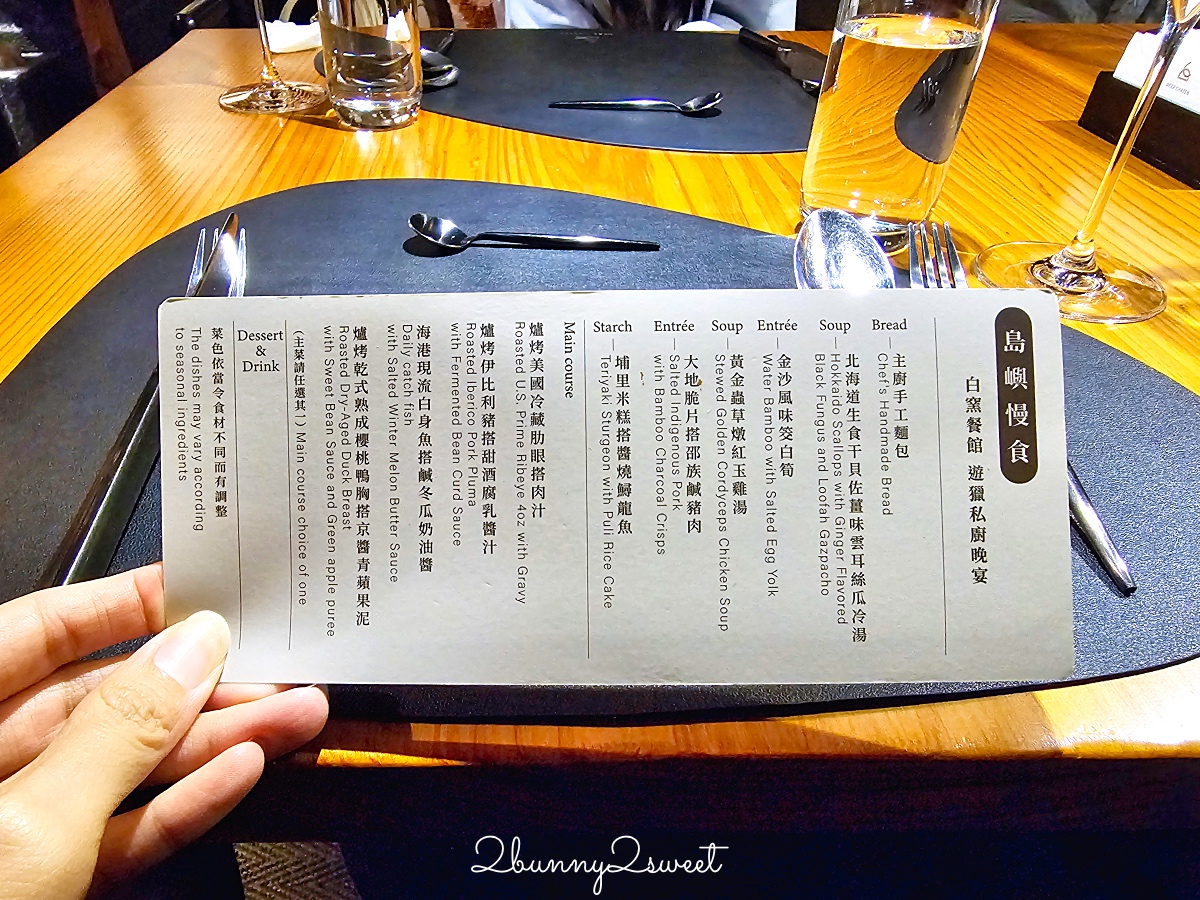 島嶼慢食
白窯餐館 遊獵私廚晚宴
Bread
主廚手工麵包
Chef's Handmade Bread
Soup
北海道生食干貝佐薑味雲耳絲瓜冷湯
Hokkaido Scallops with Ginger Flavored
Black Fungus and Loofah Gazpacho
Entrée
金沙風味筊白筍
Water Bamboo with Salted Egg Yolk
Soup
黃金蟲草燉紅玉雞湯
Stewed Golden Cordyceps Chicken Soup
Entrée
大地脆片搭邵族鹹豬肉
Salted Indigenous Pork
with Bamboo Charcoal Crisps
Starch
埔里米糕搭醬燒鱘龍魚
Teriyaki Sturgeon with Puli Rice Cake
Main course
爐烤美國冷藏肋眼搭肉汁
Roasted U.S. Prime Ribeye 4oz with Gravy
爐烤伊比利豬搭甜酒腐乳醬汁
Roasted Iberico Pork Pluma
with Fermented Bean Curd Sauce
海港現流白身魚搭鹹冬瓜奶油醬
Daily catch fish
with Salted Winter Melon Butter Sauce
爐烤乾式熟成櫻桃鴨胸搭京醬青蘋果泥
Roasted Dry-Aged Duck Breast
with Sweet Bean Sauce and Green apple puree
(主菜請任選其一) Main course choice of one
Dessert
&
Drink
菜色依當令食材不同而有調整
The dishes may vary according
to seasonal ingredients
2bunny2sweet